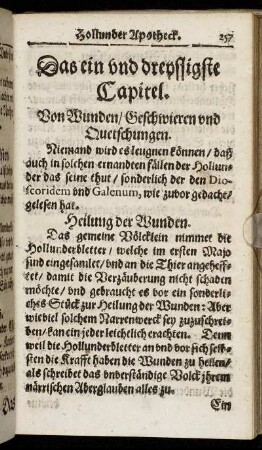 Hollunder Apotheck. 257
Das ein vnd dreyssigste
Capitel.
Von Wunden / Geschwieren vnd
Quetschungen.
Niemand wird es leugnen können / daß
auch in solchen ernandten fällen der Hollun-
der das seine thut / sonderlich der den Dio-
scoridem vnd Galenum, wie zuvor gedacht /
gelesen hat.
Heilung der Wunden.
Das gemeine Völcklein nimmet die
Hollunderbletter / welche im ersten Majo
sind eingesamlet / vnd an die Thier angeheff-
tet / damit die Verzäuberung nicht schaden
möchte / vnd gebraucht es vor ein sonderli-
ches Stück zur Heilung der Wunden: Aber
wieviel solchem Narrenwerck sey zuzuschrei-
ben / kan ein jeder leichtlich erachten. Denn
weil die Hollunderbletter an vnd vor sich selb-
sten die Krafft haben die Wunden zu heilen /
als schreibet das vnderständige Volck jhrem
närrischen Aberglauben alles zu.
Ein